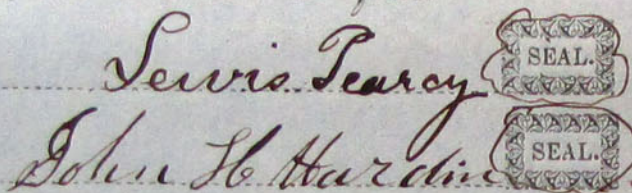 Lewis Pearcy SEAL.
John H Hardin SEAL.